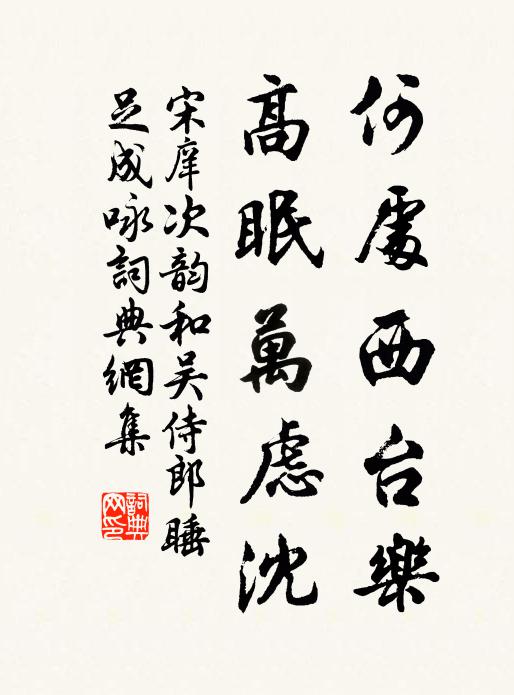 何處西台樂
高眠萬慮沈
宋庠次韵和吳侍郎睡
足成咏詞典網集
詞典網印